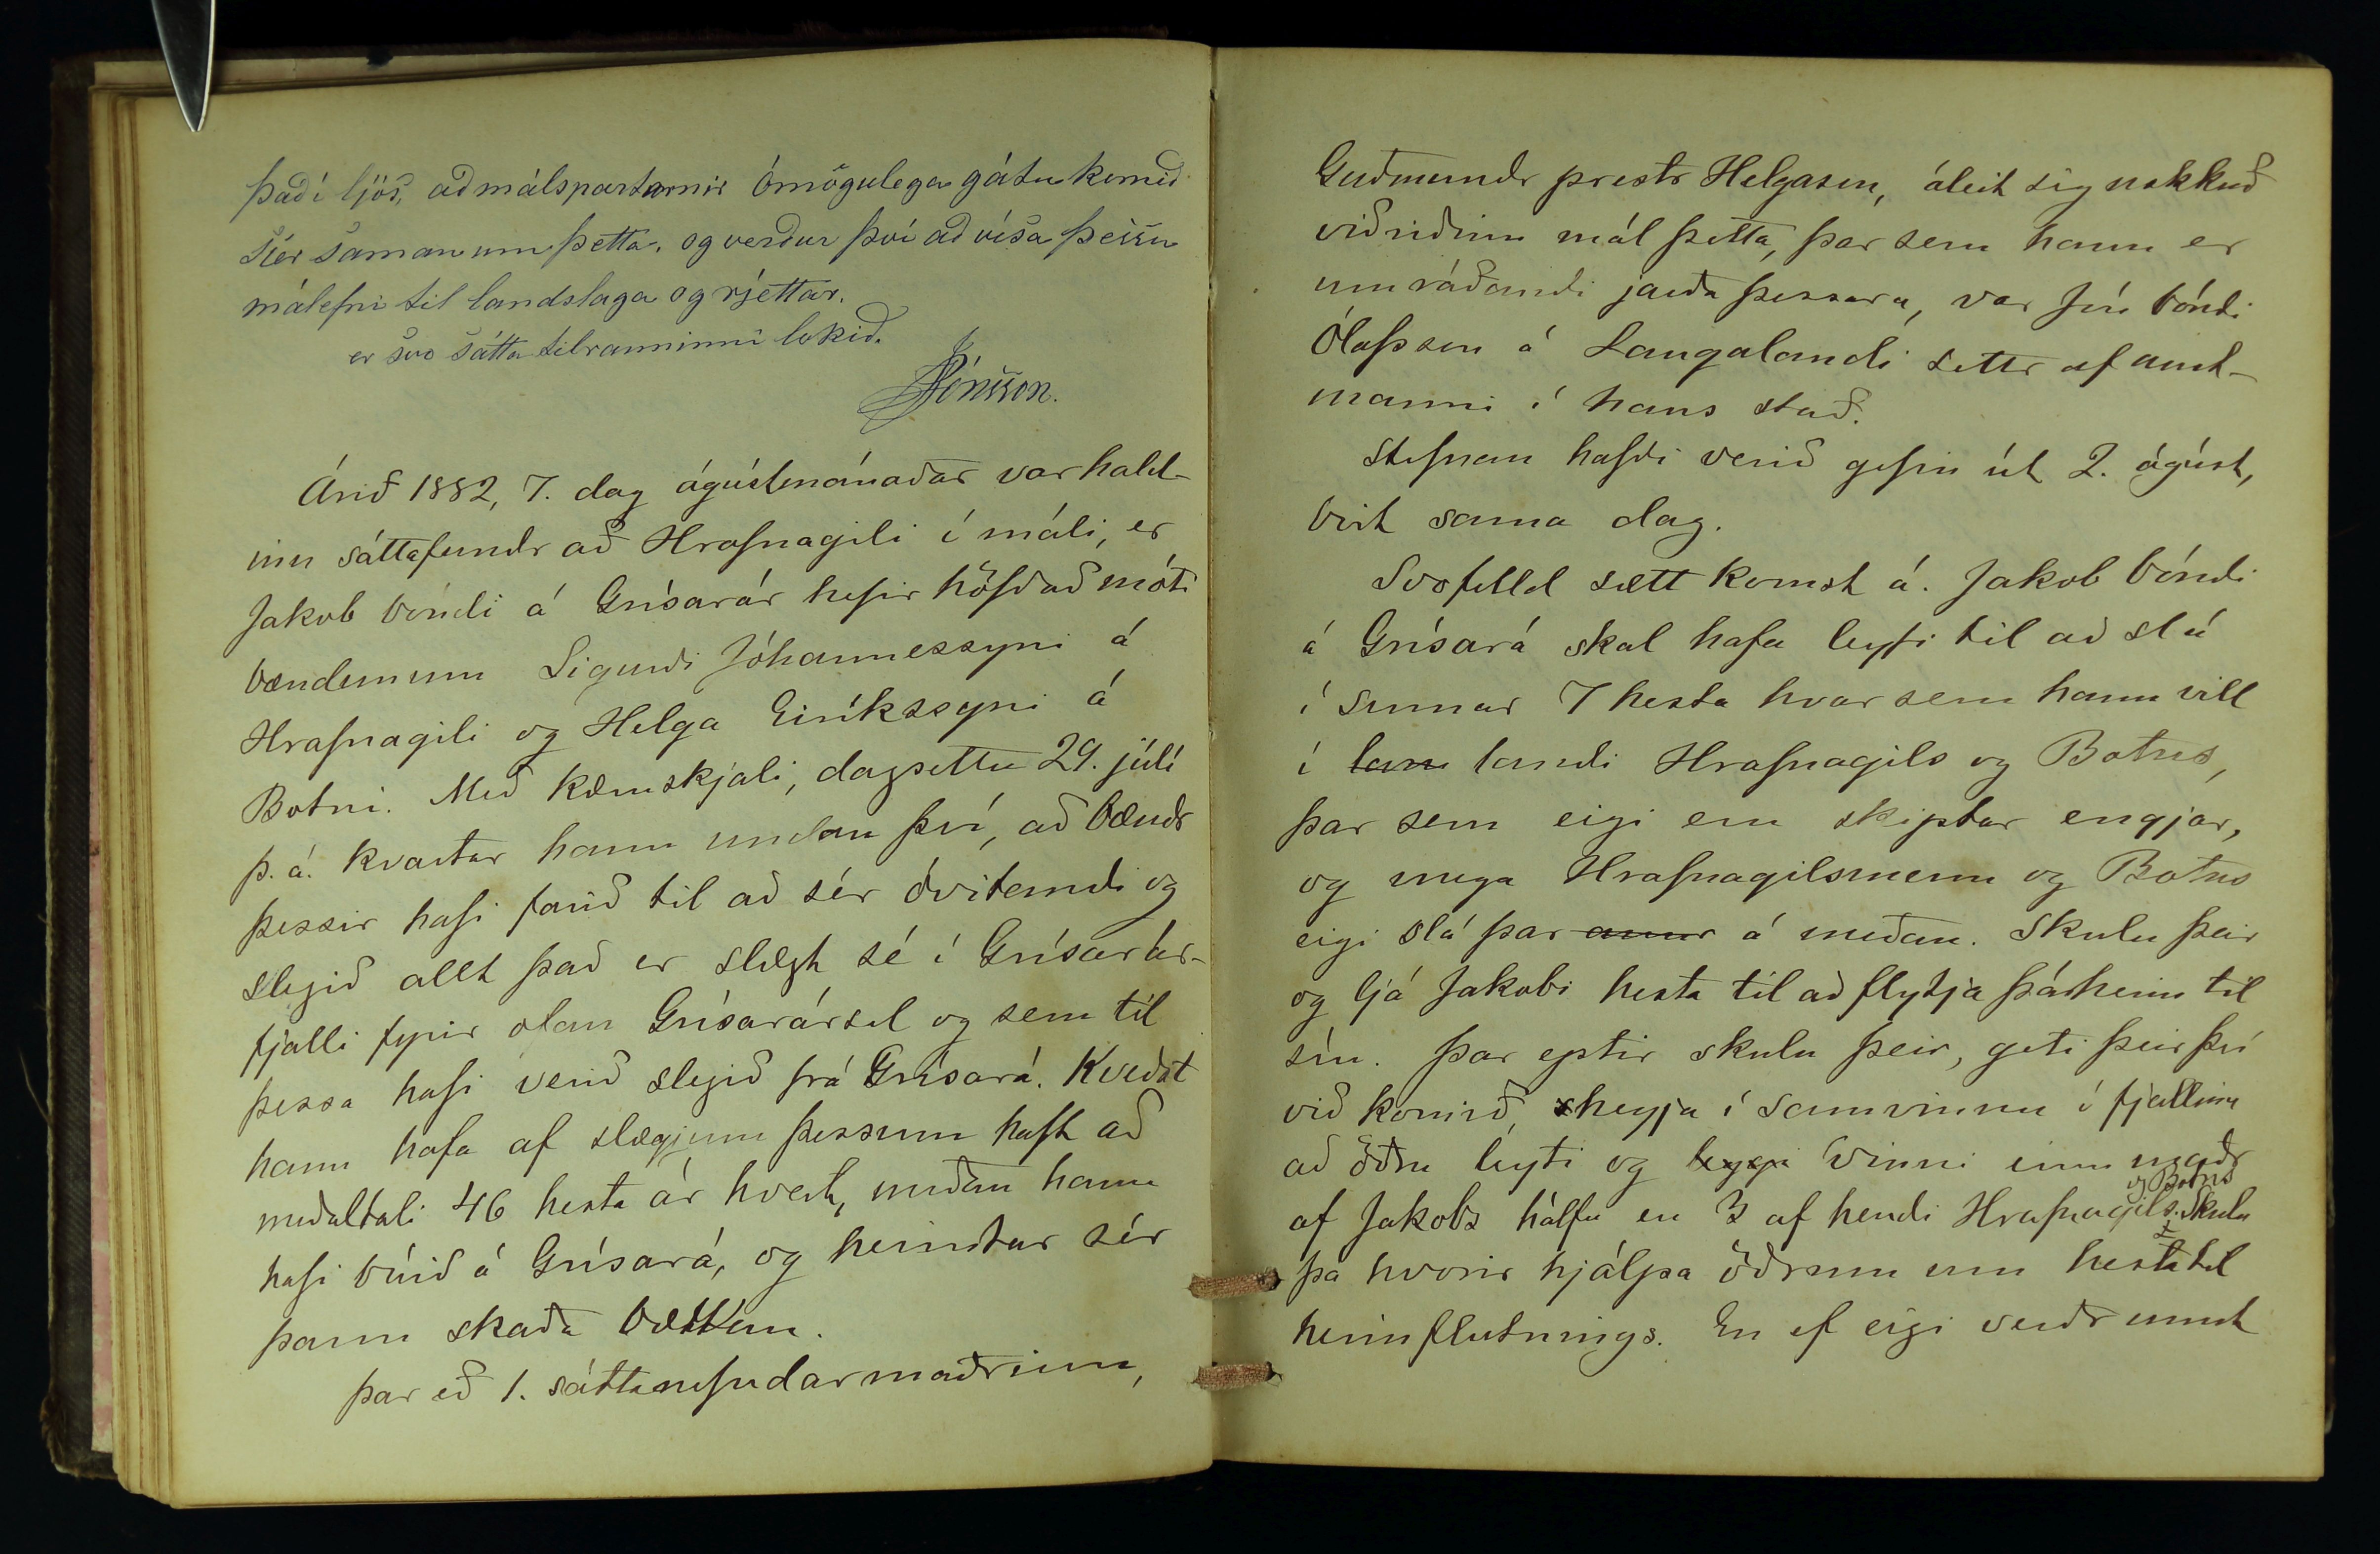 það í ljós, að málspartarnir ómögulega gátu komið
sjer saman um þetta, og verður því að vísa þessu
málefni til landslaga og rjettar.
er svo sátta tilrauninni lokið.
JJónsson.
Árið 1882, 7. dag ágústmánaðar var hald-
inn sáttafundr að Hrafnagili í máli, er
Jakob bóndi á Grísarár hefir höfðað móti
bændunum Sigurði Jóhannessyni á
Hrafnagili og Helga Eiríkssyni á
Botni. Með kæruskjali, dagsettu 29. júlí
þ. á. kvartar hann undan því, að bændr
þessir hafi farið til að sér óvitandi og
slegið allt það er slægt sé í Grísarár-
fjalli fyrir ofan Grísarársel og sem til
þessa hafi verið slegið frá Grísará. Kveðst
hann hafa af slægjum þessum haft að
meðaltali 46 hesta ár hvert, meðan hann
hafi búið á Grísará, og heimtar sér
þann skaða bættan.
Þar eð 1. sáttanefndarmaðrinn,
Guðmundr prestr Helgason, áleit sig nokkuð
viðriðinn mál þetta, þar sem hann er
umráðandi jarða þessara, var Jón bóndi
Ólafsson á Laugalandi settr af amt-
manni í hans stað.
Stefnan hafði verið gefin út 2. ágúst,
birt sama dag.
Svofelld sætt komst á. Jakob bóndi
á Grísará skal hafa leyfi til að slá
í sumar 7 hesta hvar sem hann vill
í lan landi Hrafnagils og Botns,
þar sem eigi eru skiptar engjar,
og mega Hrafnagilsmenn og Botns
eigi slá þar annar á meðan. Skulu þeir
og ljá Jakobi hesta til að flytja þá heim til
sín. Þar eptir skulu þeir, geti þeir því
við komið, heyja í samvinnu í fjallinu
að öðru leyti og leggi vinni einn maðr
af Jakobs hálfu en 3 af hendi Hrafnagils og Botns. Skulu
þá hvorir hjálpa öðrum um hesta til
heimflutnings. En ef eigi verðr unnt